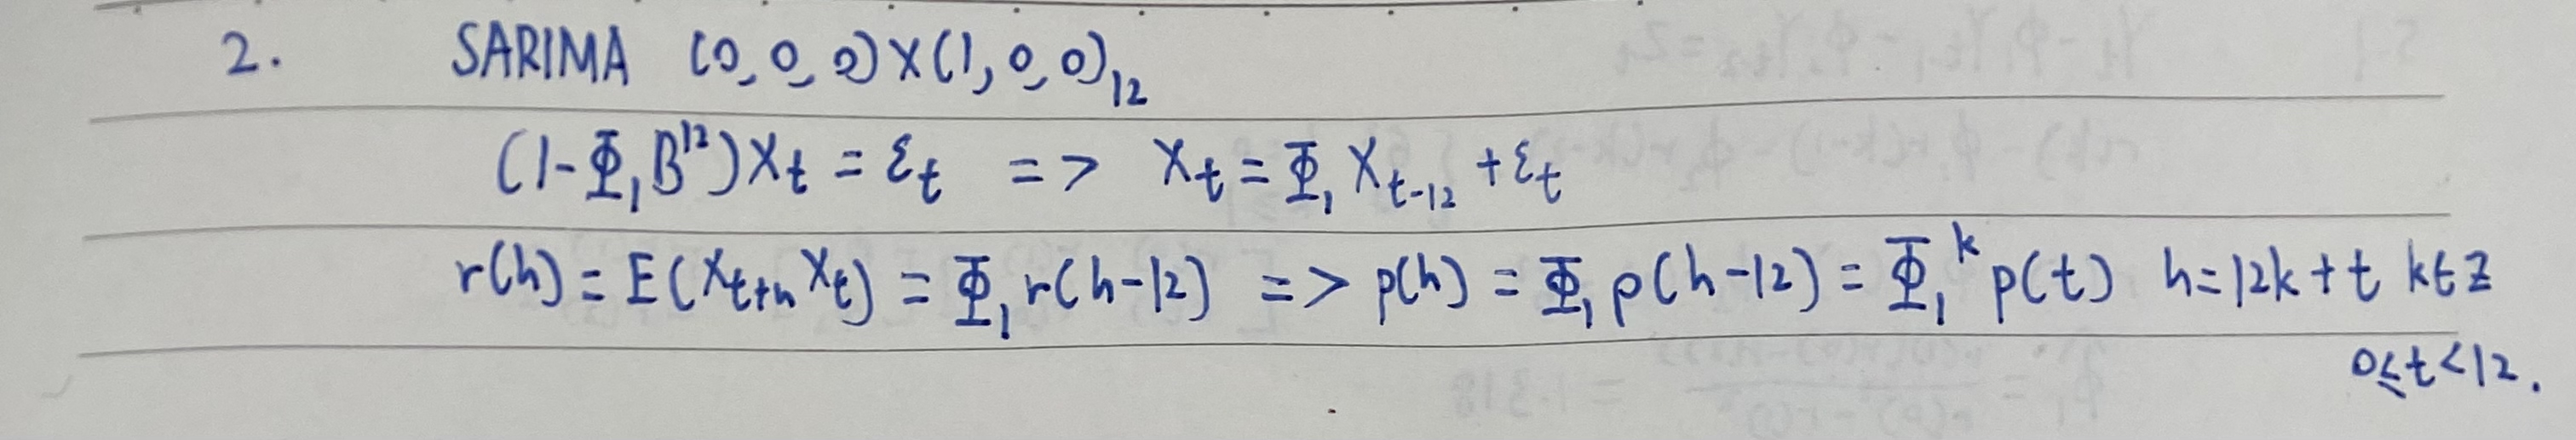 2. SARIMA (0,0,0)×(1,0,0)₁₂
(1-Φ₁B¹²)Xt = εt => Xt = Φ₁ Xt-12 + εt
r(h) = E(Xt+h Xt) = Φ₁ r(h-12) => ρ(h) = Φ₁ρ(h-12) = Φ₁ᵏ ρ(t) h=12k+t k∈Z
0≤t<12.